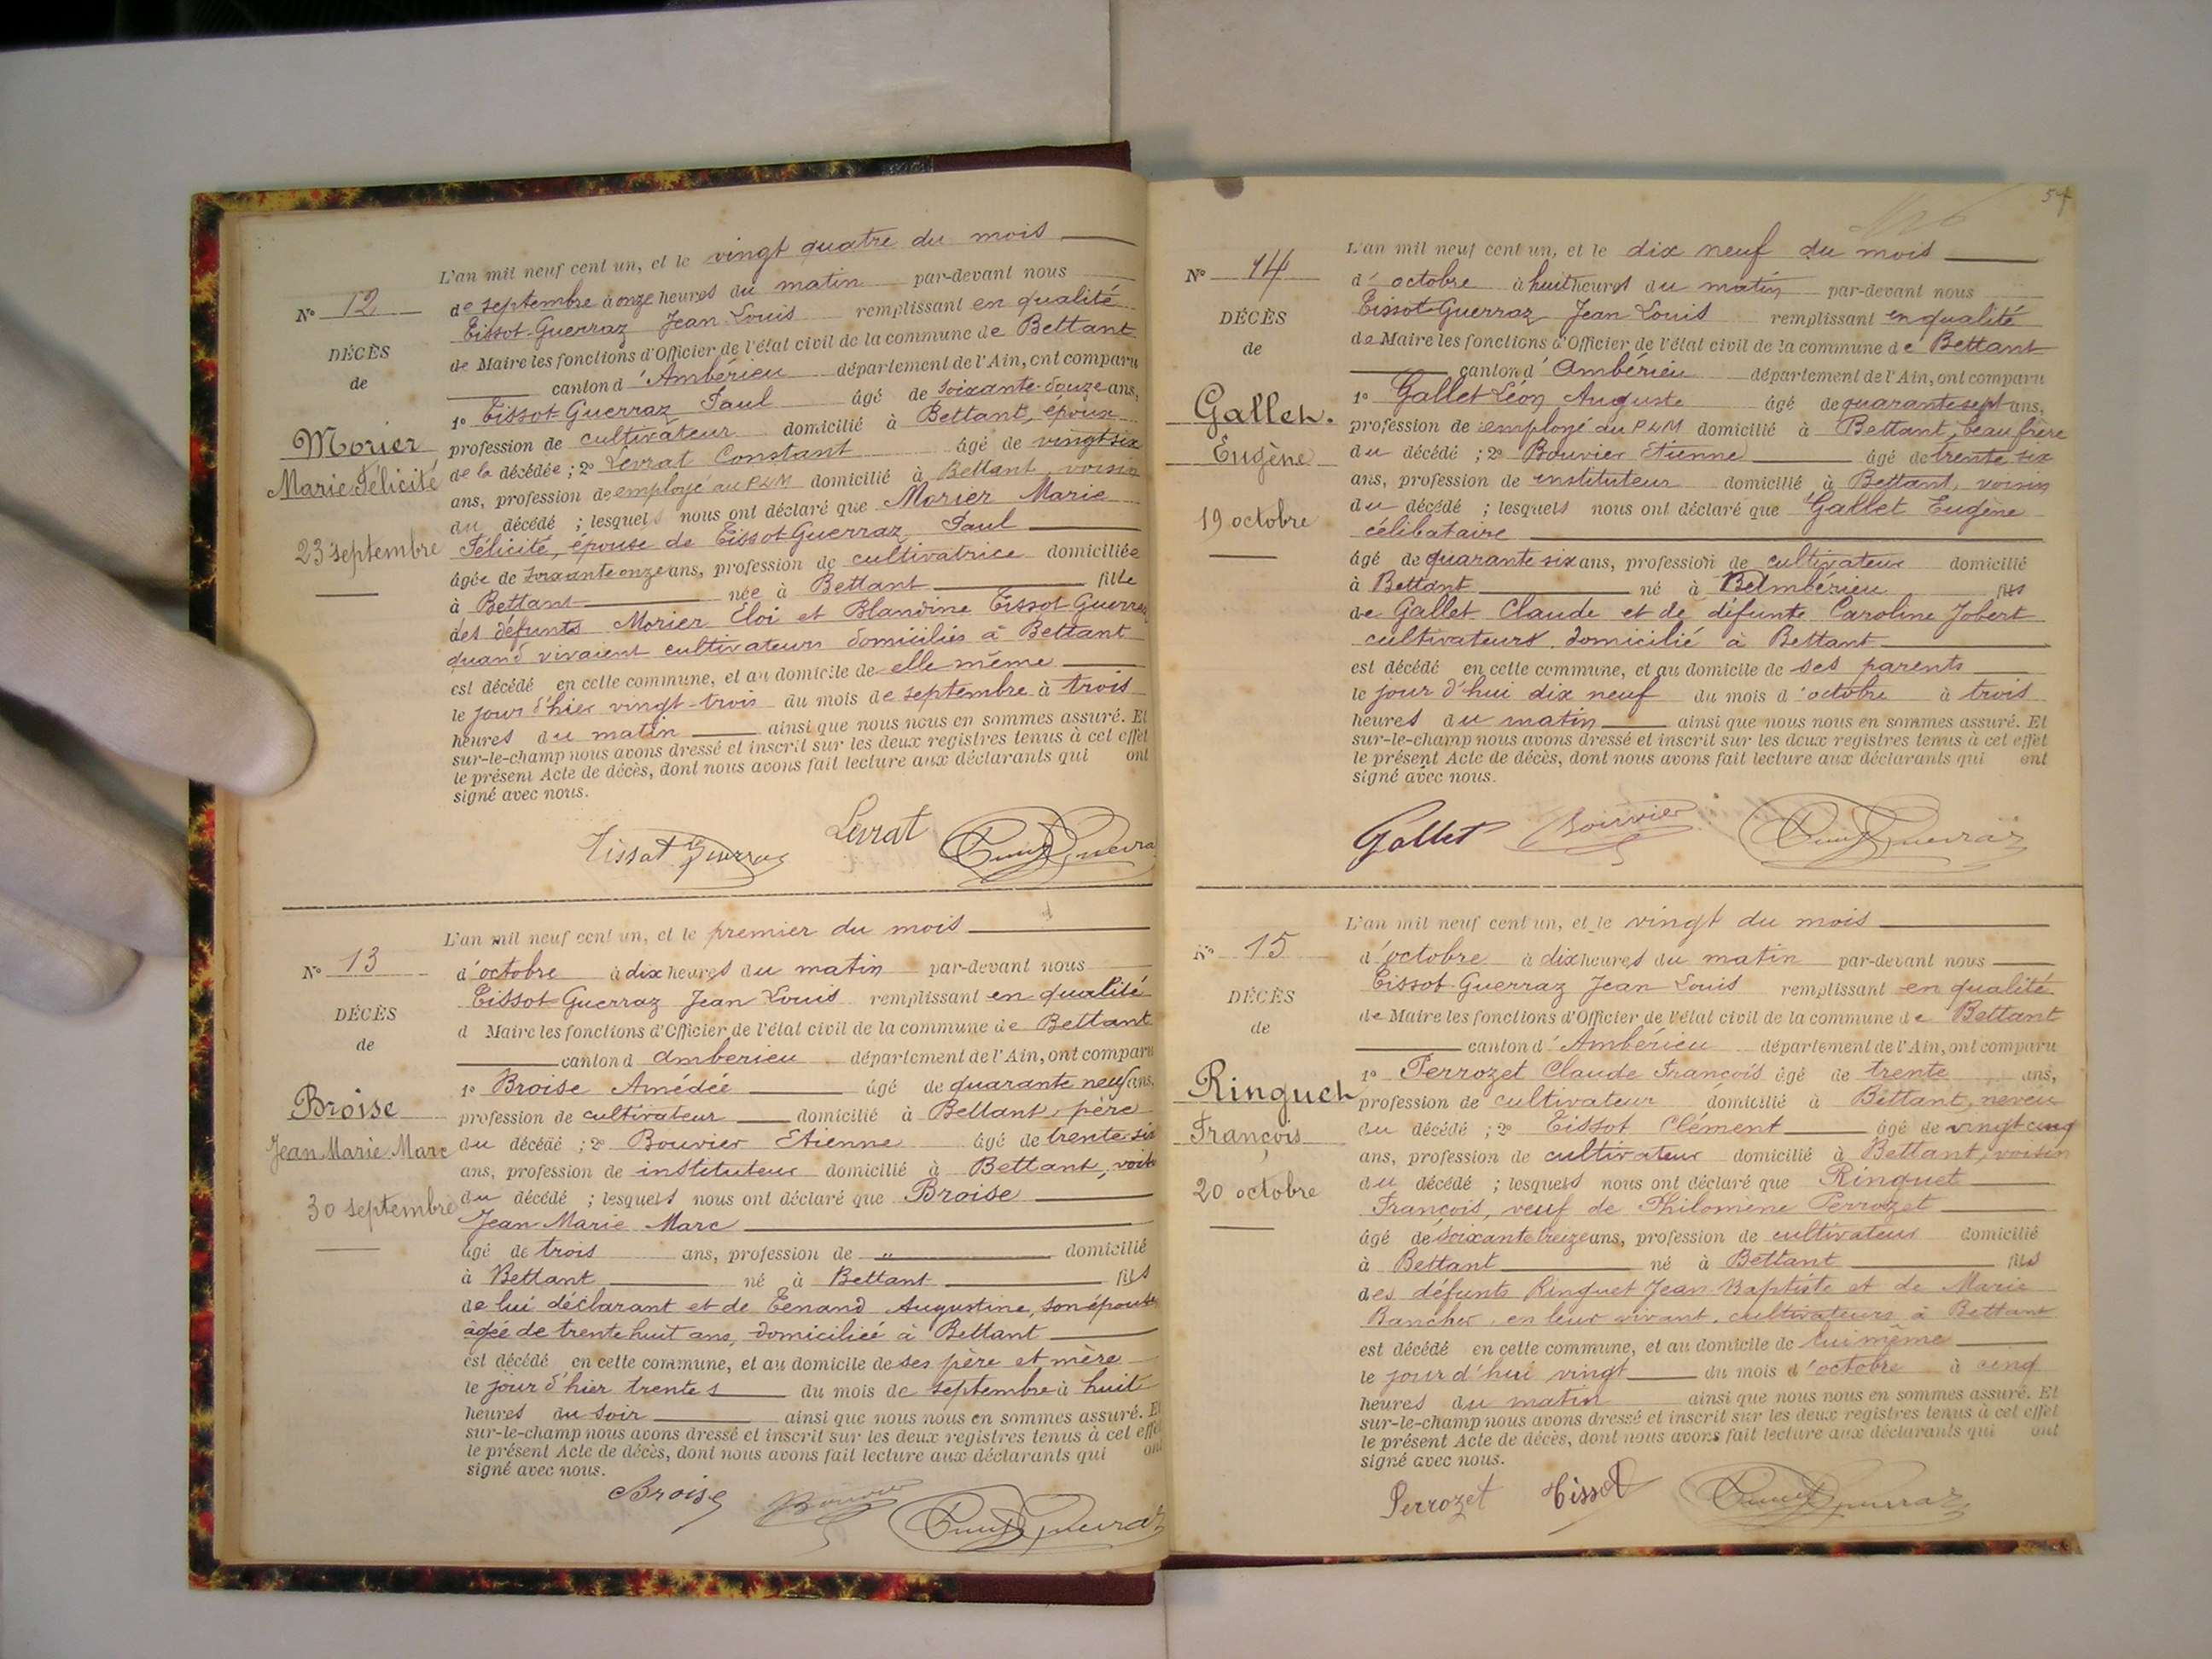 L'an mil neuf cent un, et le vingt quatre du mois
N° 12
de septembre à onze heures du matin par-devant nous
Tissot-Guerraz Jean Louis remplissant en qualité
DÉCÈS
de Maire les fonctions d'Officier de l'état civil de la commune de Bettant
de
canton d'Ambérieu département de l'Ain, ont comparu
1° Tissot-Guerraz Paul âgé de soixante-douze ans,
Morier
profession de cultivateur domicilié à Bettant, époux
Marie Félicité
de la décédée ; 2° Levrat Constant âgé de vingt six
ans, profession de employé au PLM domicilié à Bettant, voisin
du décédé ; lesquels nous ont déclaré que Morier Marie
23 septembre
Félicité, épouse de Tissot-Guerraz Paul
âgée de soixante onze ans, profession de cultivatrice domiciliée
à Bettant née à Bettant fille
des défunts Morier Eloi et Blandine Tissot-Guerraz
quand vivaient cultivateurs domiciliés à Bettant
est décédé en cette commune, et au domicile de elle même
le jour d'hier vingt-trois du mois de septembre à trois
heures du matin ainsi que nous nous en sommes assuré. Et
sur-le-champ nous avons dressé et inscrit sur les deux registres tenus à cet effet
le présent Acte de décès, dont nous avons fait lecture aux déclarants qui ont
signé avec nous.
Tissot Guerraz Levrat
L'an mil neuf cent un, et le premier du mois
N° 13
d'octobre à dix heures du matin par-devant nous
Tissot-Guerraz Jean Louis remplissant en qualité
DÉCÈS
d Maire les fonctions d'Officier de l'état civil de la commune de Bettant
de
canton d Ambérieu département de l'Ain, ont comparu
1° Broise Amédée âgé de quarante neuf ans,
Broise
profession de cultivateur domicilié à Bettant, père
Jean Marie Marc
du décédé ; 2° Bouvier Etienne âgé de trente six
ans, profession de instituteur domicilié à Bettant, voisin
du décédé ; lesquels nous ont déclaré que Broise
30 septembre
Jean Marie Marc
âgé de trois ans, profession de " domicilié
à Bettant né à Bettant fils
de lui déclarant et de Tenand Augustine, son épouse
âgée de trente huit ans, domiciliée à Bettant
est décédé en cette commune, et au domicile de ses père et mère
le jour d'hier trente s du mois de septembre à huit
heures du soir ainsi que nous nous en sommes assuré. Et
sur-le-champ nous avons dressé et inscrit sur les deux registres tenus à cet effet
le présent Acte de décès, dont nous avons fait lecture aux déclarants qui ont
signé avec nous.
Broise Bouvier
L'an mil neuf cent un, et le dix neuf du mois
N° 14
d'octobre à huit heures du matin par-devant nous
Tissot-Guerraz Jean Louis remplissant en qualité
DÉCÈS
de Maire les fonctions d'Officier de l'état civil de la commune de Bettant
de
canton d'Ambérieu département de l'Ain, ont comparu
1° Gallet Léon Auguste âgé de quarante sept ans,
Gallet.
profession de employé au PLM domicilié à Bettant, beau frère
Eugène
du décédé ; 2° Bouvier Etienne âgé de trente six
ans, profession de instituteur domicilié à Bettant, voisin
19 octobre
du décédé ; lesquels nous ont déclaré que Gallet Eugène
célibataire
âgé de quarante six ans, profession de cultivateur domicilié
à Bettant né à fils
de Gallet Claude et de défunte Caroline Jobert
cultivateurs domicilié à Bettant
est décédé en cette commune, et au domicile de ses parents
le jour d'hui dix neuf du mois d'octobre à trois
heures du matin ainsi que nous nous en sommes assuré. Et
sur-le-champ nous avons dressé et inscrit sur les deux registres tenus à cet effet
le présent Acte de décès, dont nous avons fait lecture aux déclarants qui ont
signé avec nous.
Gallet Bouvier
L'an mil neuf cent un, et le vingt du mois
N° 15
d'octobre à dix heures du matin par-devant nous
Tissot-Guerraz Jean Louis remplissant en qualité
DÉCÈS
de Maire les fonctions d'Officier de l'état civil de la commune de Bettant
de
canton d'Ambérieu département de l'Ain, ont comparu
1° Perrozet Claude François âgé de trente ans,
Ringuet
profession de cultivateur domicilié à Bettant, neveu
François
du décédé ; 2° Tissot Clément âgé de vingt cinq
ans, profession de cultivateur domicilié à Bettant, voisin
20 octobre
du décédé ; lesquels nous ont déclaré que Ringuet
François, veuf de Philomène Perrozet
âgé de soixante treize ans, profession de cultivateur domicilié
à Bettant né à Bettant fils
des défunts Ringuet Jean Baptiste et de Marie
Bancher en leur vivant, cultivateurs à Bettant
est décédé en cette commune, et au domicile de lui même
le jour d'hui vingt du mois d'octobre à cinq
heures du matin ainsi que nous nous en sommes assuré. Et
sur-le-champ nous avons dressé et inscrit sur les deux registres tenus à cet effet
le présent Acte de décès, dont nous avons fait lecture aux déclarants qui ont
signé avec nous.
Perrozet Tissot